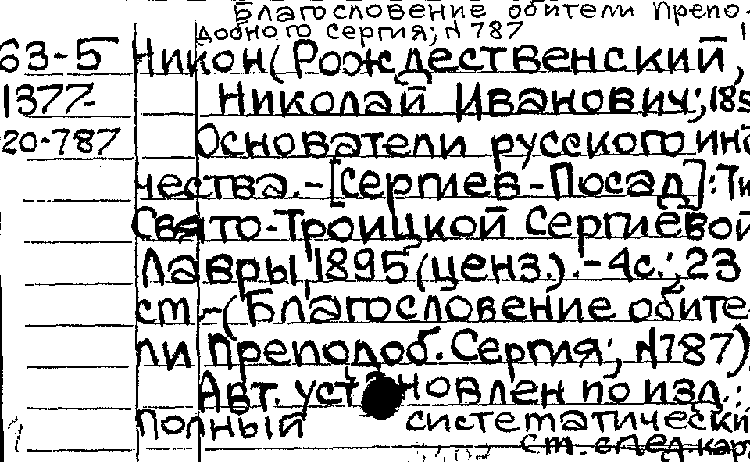 Благословение обители Препо-
добного Сергия; N 787
63-5 Никон (Рождественский,
1377- Николай Иванович; 185
20-787 Основатели русского ино
чества. - [Сергиев-Посад]: Ти
Свято-Троицкой Сергиевой
Лавры, 1895 (ценз.). - 4с.; 23
см. - (Благословение обите
ли Преподоб. Сергия; N787)
Авт. установлен по изд.:
Полный систематически
см. след. кар